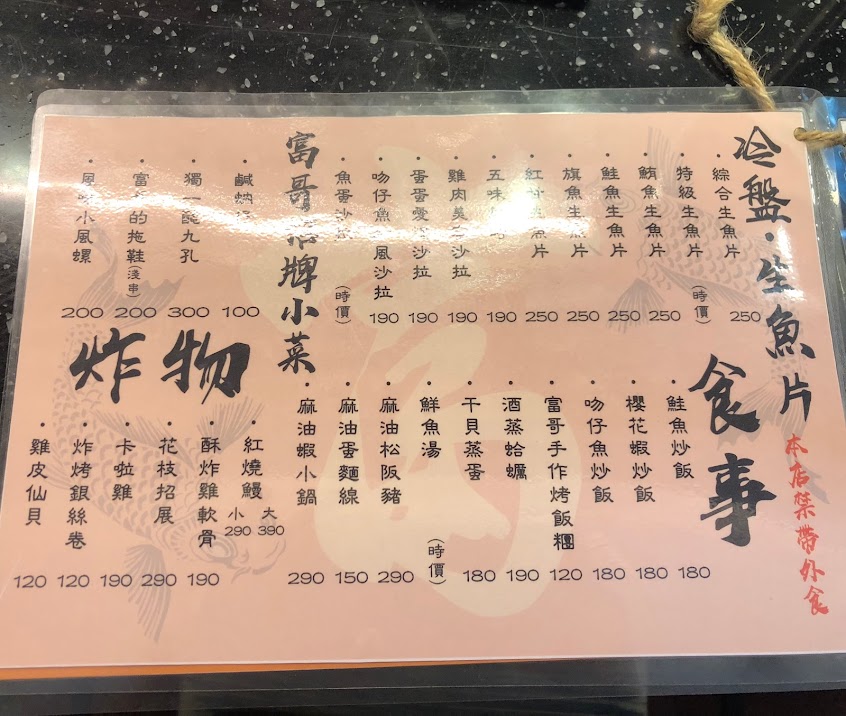 冷盤·生魚片
·綜合生魚片 250
·特級生魚片 (時價)
·鮪魚生魚片 250
·鮭魚生魚片 250
·旗魚生魚片 250
·紅 生魚片 250
·五味 190
·雞肉 沙拉 190
·蛋蛋 沙拉 190
·吻仔魚 風沙拉 190
·魚蛋沙 (時價)
富哥 牌小菜
·鹹蚋 100
·獨一 九孔 300
·富 的拖鞋(淺串) 200
· 小風螺 200
食事
·鮭魚炒飯 180
·櫻花蝦炒飯 180
·吻仔魚炒飯 180
·富哥手作烤飯糰 120
·酒蒸蛤蠣 190
·干貝蒸蛋 180
·鮮魚湯 (時價)
·麻油松阪豬 290
·麻油蛋麵線 150
·麻油蝦小鍋 290
炸物
·紅燒鰻 大390 小290
·酥炸雞軟骨 190
·花枝招展 290
·卡啦雞 190
·炸烤銀絲卷 120
·雞皮仙貝 120
本店禁帶外食